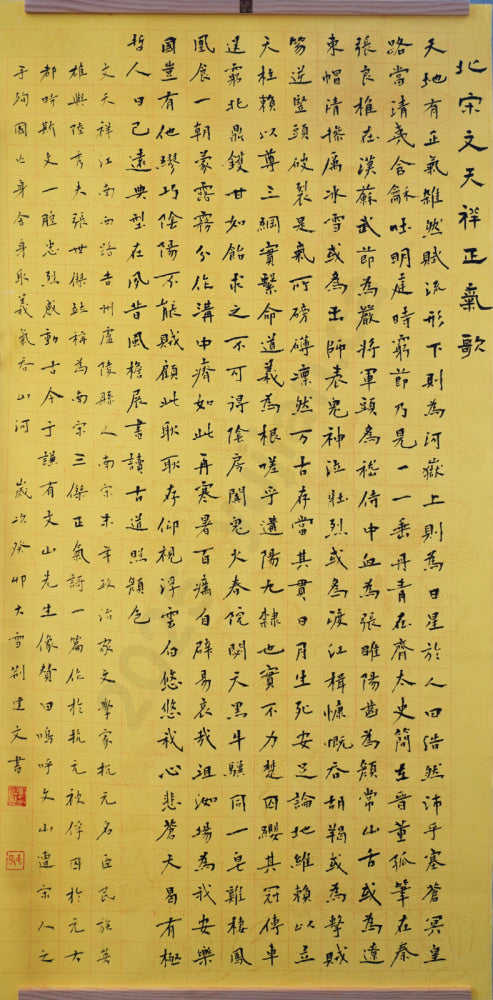 北宋文天祥正氣歌
天地有正氣雜然賦流形下則為河嶽上則為日星於人曰浩然沛乎塞蒼冥皇
路當清夷含龢吐明庭時窮節乃見一一垂丹青在齊太史簡在晉董狐筆在秦
張良椎在漢蘇武節為嚴將軍頭為嵇侍中血為張睢陽齒為顏常山舌或為遼
東帽清操厲冰雪或為出師表鬼神泣壯烈或為渡江楫慷慨吞胡羯或為擊賊
笏逆豎頭破裂是氣所磅礴凜然万古存當其貫日月生死安足論地維賴以立
天柱賴以尊三綱實繫命道義為根嗟乎遘陽九隸也實不力楚囚纓其冠傳車
送窮北鼎鑊甘如飴求之不可得陰房闃鬼火春院閟天黑牛驥同一皂雞棲鳳
凰食一朝蒙露霧分作溝中瘠如此再寒暑百癘自辟易哀哉沮洳場為我安樂
國豈有他繆巧陰陽不能賊顧此耿耿存仰視浮雲白悠悠我心悲蒼天曷有極
哲人日已遠典型在夙昔風檐展書讀古道照顏色
文天祥江南西路吉州廬陵縣人南宋末年政治家文學家抗元名臣民族英
雄與陸秀夫張世傑並稱為南宋三傑正氣謌一篇作於抗元被俘囚於元大
都時斯文一腔忠烈感動古今于謙有文山先生像贊曰嗚呼文山遭宋人之
于殉國亡身舍身取義氣吞山河 歲次癸卯大雪荊建文書